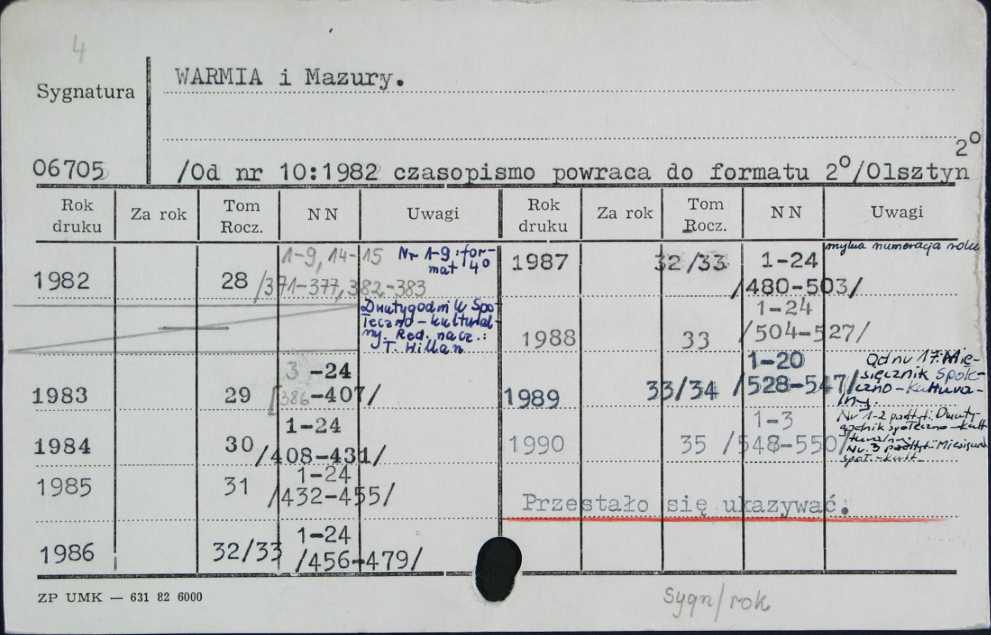 4
Sygnatura
WARMIA i Mazury.
2°
06705 /Od nr 10:1982 czasopismo powraca do formatu 2°/Olsztyn
Rok druku Za rok Tom Rocz. NN Uwagi
1982 28 1-9, 14-15 /371-377, 382-383 Nr 1-9: for-
mat 4°
Dwutygodnik Spo
łeczno-kultural-
ny. Red. nacz.:
T. Hillan
1983 29 3 -24
[386-407/
1984 30 1-24
/408-431/
1985 31 1-24
/432-455/
1986 32/33 1-24
/456-479/
Rok druku Za rok Tom Rocz. NN Uwagi
1987 32/33 1-24 mylna numeracja roku
/480-503/
1988 33 1-24
/504-527/
1989 33/34 1-20
/528-547/ Od nu 17: Mie-
sięcznik społe-
czno-kultura-
lny.
1990 35 1-3
/548-550/ Nr 1-2 podtyt: Dwuty-
godnik społeczno-kult
Nr. 3 podtyt: Miesięcznik
społ.-kult.
Przestało się ukazywać.
ZP UMK — 631 82 6000
Sygn/rok